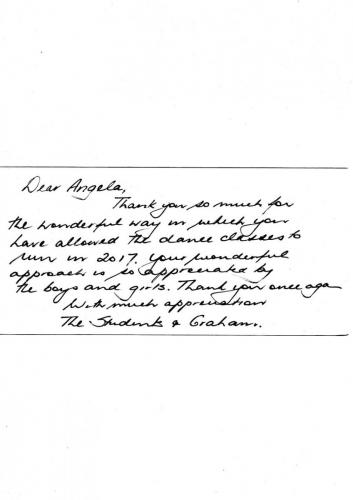 Dear Angela,
Thank you so much for
the wonderful way in which you
have allowed the dance classes to
run in 2017. Your wonderful
approach is so appreciated by
the boys and girls. Thank you once again
With much appreciation
The Students & Graham.